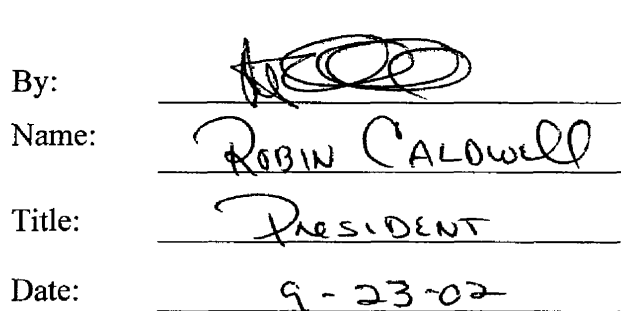 By:
Name: Robin Caldwell
Title: President
Date: 9-23-02